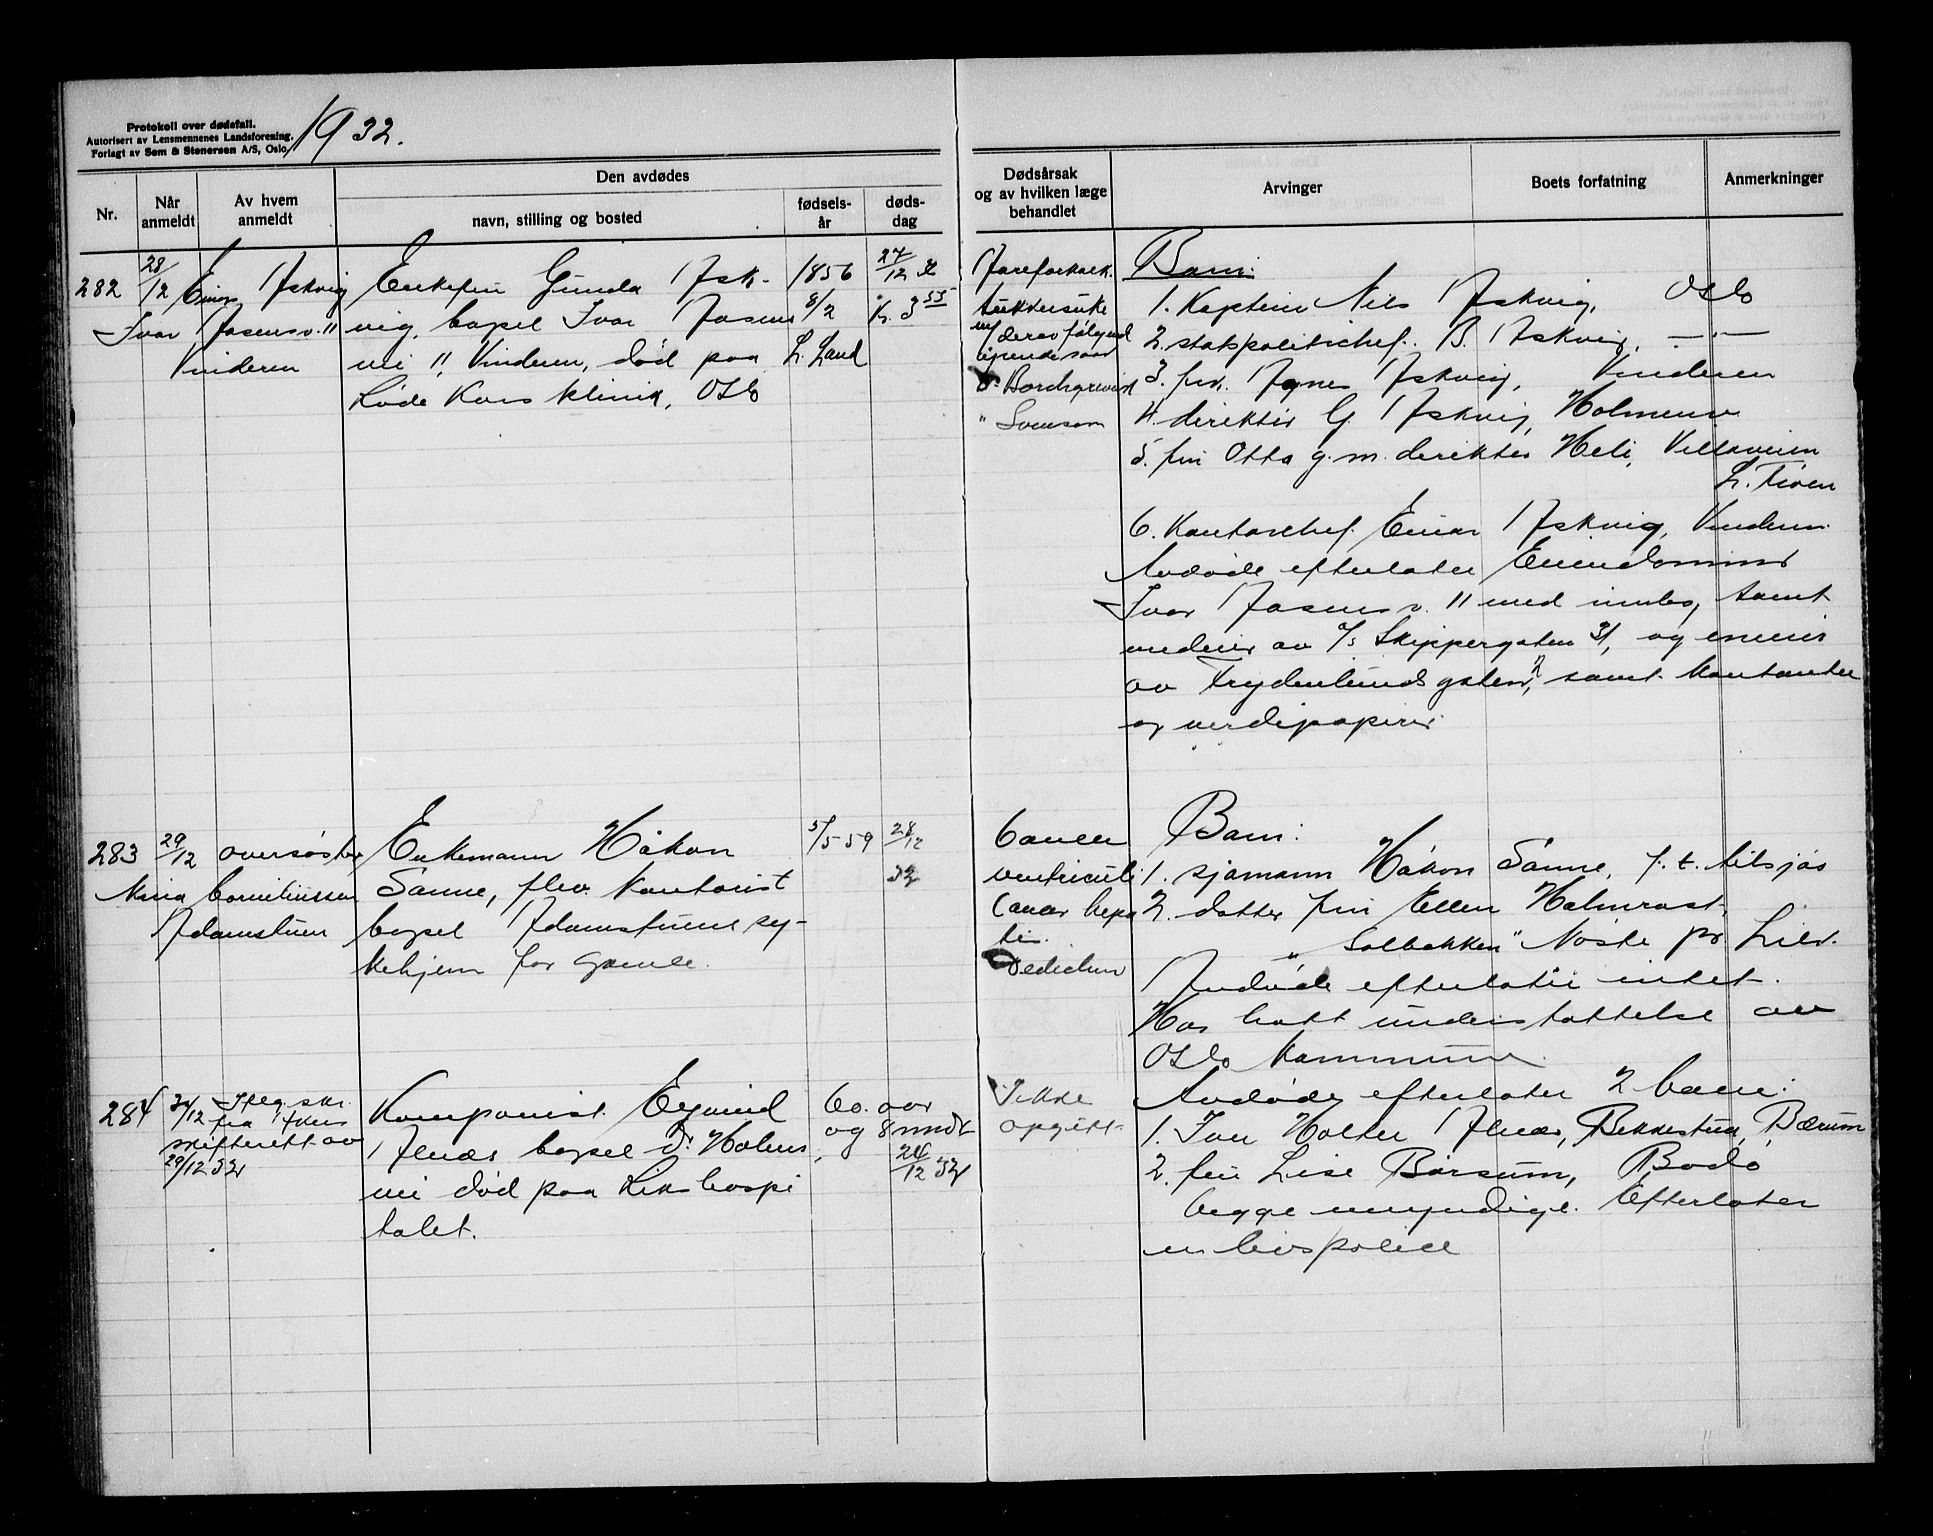 Protokoll over dødsfall.
Autorisert av Lensmennenes Landsforening.
Forlagt av Sem & Stenersen A/S, Oslo.
1932.
Nr.
Når anmeldt
Av hvem anmeldt
Den avdødes
navn, stilling og bosted
fødsels-
år
døds-
dag
Dødsårsak
og av hvilken læge
behandlet
Arvinger
Boets forfatning
Anmerkninger
282
28/12
Einar Askvig
Ivar Aasensv. 11
Vinderen
Enkefru Gunda Ask-
vig, bopel Ivar Aasens
vei 11, Vinderen, død paa
Røde Kors klinik, Oslo
1856
8/2
27/12 32
Kl. 3 55
Aareforkalk.
sukkersyke
m/ derav følgend
Borchgrevink
" Svensson
Barn:
1. Kaptein Nils Askvig, Oslo
2. statspolitichef. B. Askvig, — " —
3. frk. Agnes Askvig, Vinderen
4. direktør G. Askvig, Holmenv
5. fru Otta g. m. direktør Heli, Villaveien
6. Kontorchef. Einar Askvig, Vinderen.
Avdøde efterlater Eiendommen
Ivar Aasensv. 11 med innbo, samt
medeier av A/S Skippergaten 31, og eneeier
av Frydenlundsgaten, samt kontanter
og verdipapirer.
283
29/12
oversøster
Maria Corneliussen
Adamstuen
Enkemann Håkon
Sanne, flev. kontorist
bopel Adamstuens sy-
kehjem for gamle.
5/5-59
28/12
32
Cancer
ventriculi
Cancer hepa
tis.
Dedichen
Barn:
1. sjømann Håkon Sanne, f. t. tilsjøs
2. datter fru Ellen Holmrast,
"Solbakken" Nøste pr. Lier.
Avdøde efterlater intet.
Har hatt understøttelse av
Oslo Kommune.
284
31/12
fra Akers
skifterett av
29/12 32
Komponist Eyvind
Alnæs bopel Dr. Holms
vei død paa Rikshospi
talet.
60. aar
og 8 mndr
24/12 32
Ikke
opgitt
Avdøde efterlater 2 barn:
1. Iver Holter Alnæs, Bekkestua, Bærum
2. fru Lise Børsum, Bodø
begge umyndige. Efterlater
en livspolice